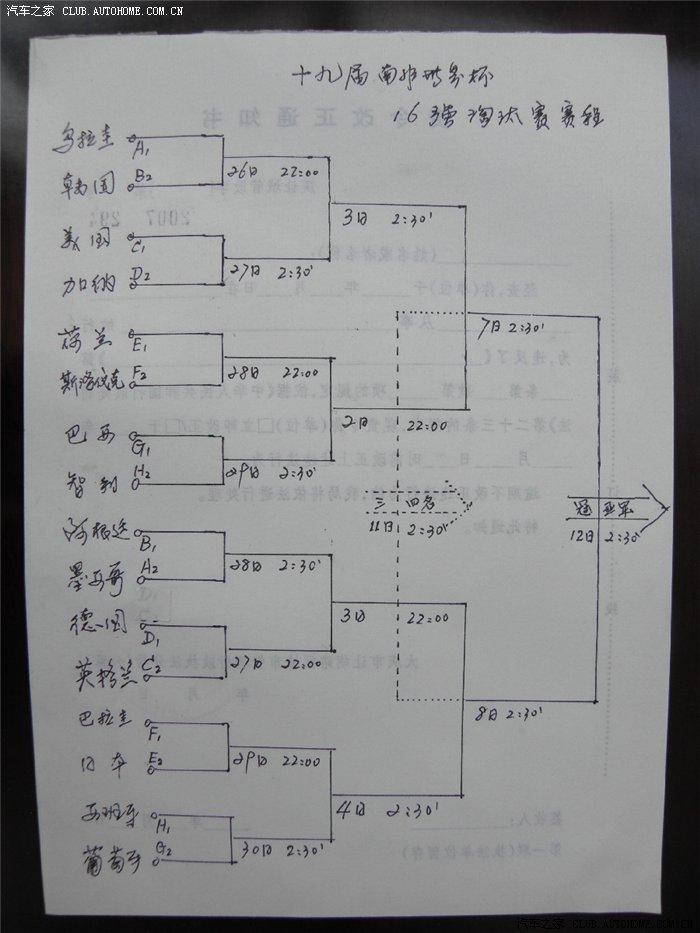 汽车之家 CLUB.AUTOHOME.COM.CN
十九届南非世界杯
16强淘汰赛赛程
乌拉圭 A1
韩国 B2
26日 22:00
3日 2:30'
美国 C1
加纳 D2
27日 2:30'
7日 2:30'
荷兰 E1
斯洛伐克 F2
28日 22:00
2日 22:00
巴西 G1
智利 H2
29日 2:30'
三四名
11日 2:30'
冠亚军
12日 2:30'
阿根廷 B1
墨西哥 A2
28日 2:30'
3日 22:00
德国 D1
英格兰 C2
27日 22:00
8日 2:30'
巴拉圭 F1
日本 E2
29日 22:00
4日 2:30'
西班牙 H1
葡萄牙 G2
30日 2:30'
汽车之家 CLUB.AUTOHOME.COM.CN